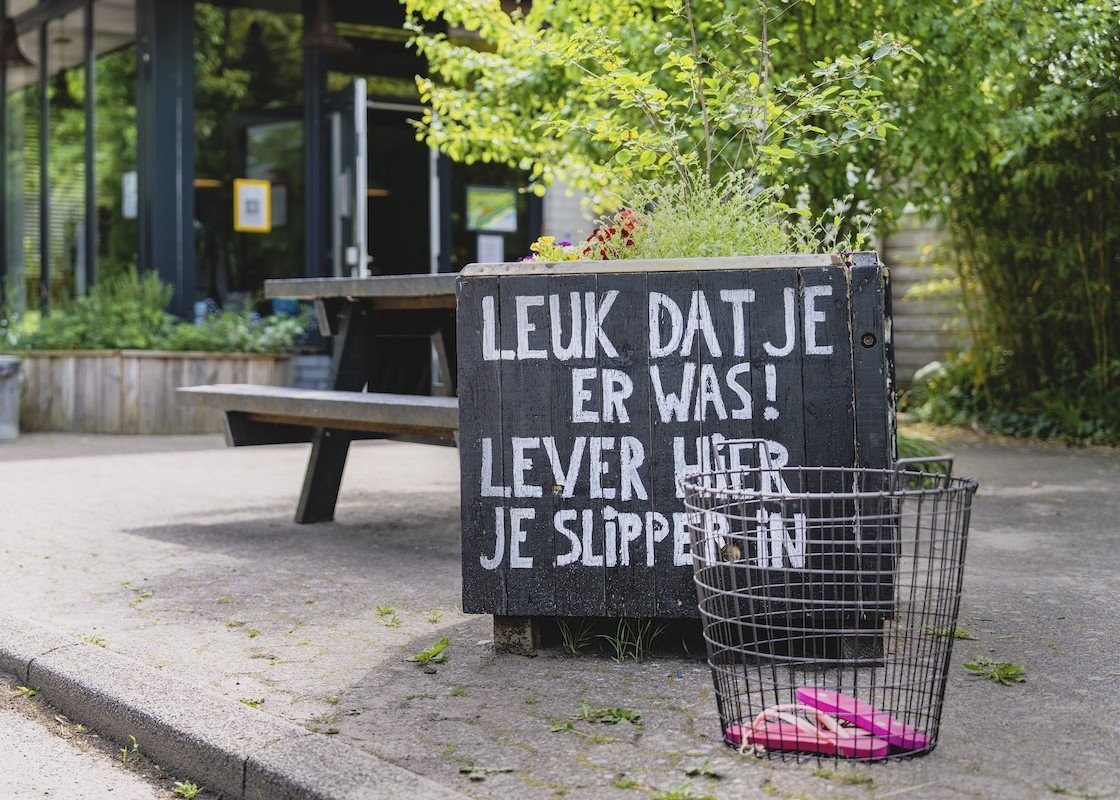 LEUK DAT JE
ER WAS!
LEVER HIER
JE SLIPPER IN